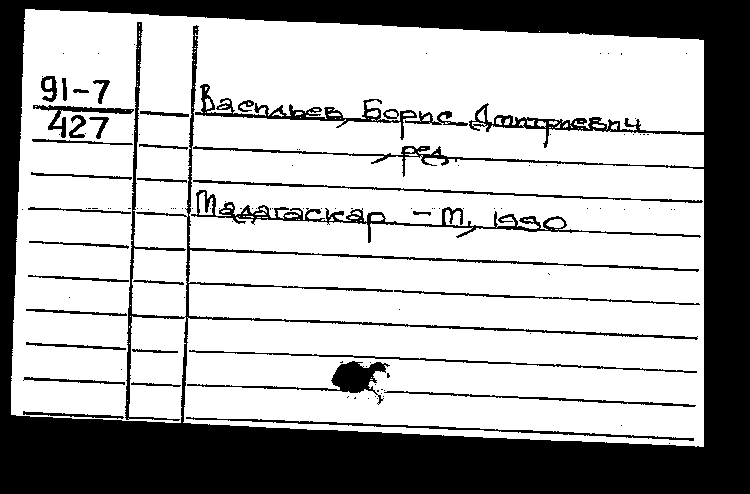 91-7
427
Васильев, Борис Дмитриевич
, ред.
Мадагаскар. - М., 1990